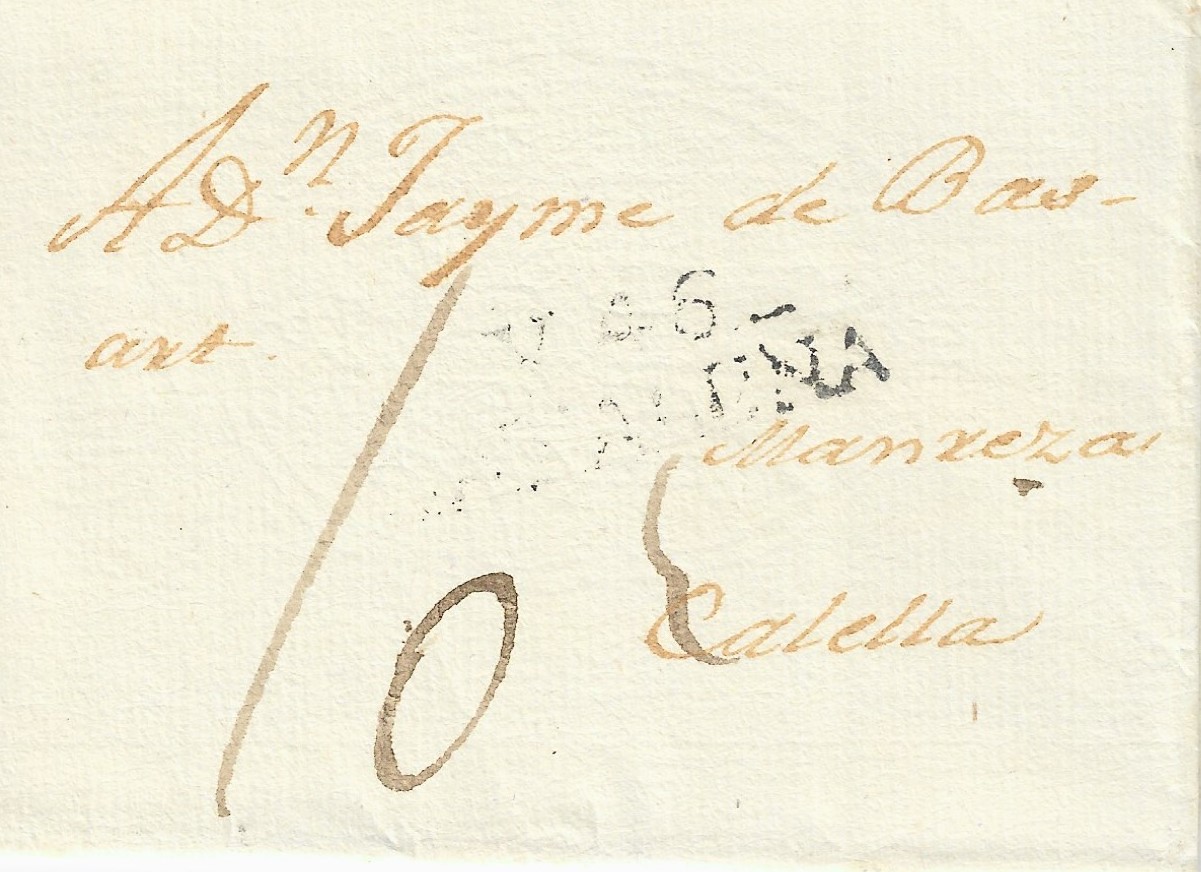 A Dⁿ. Jayme de Bas-
art.
Manreza
Calella
10